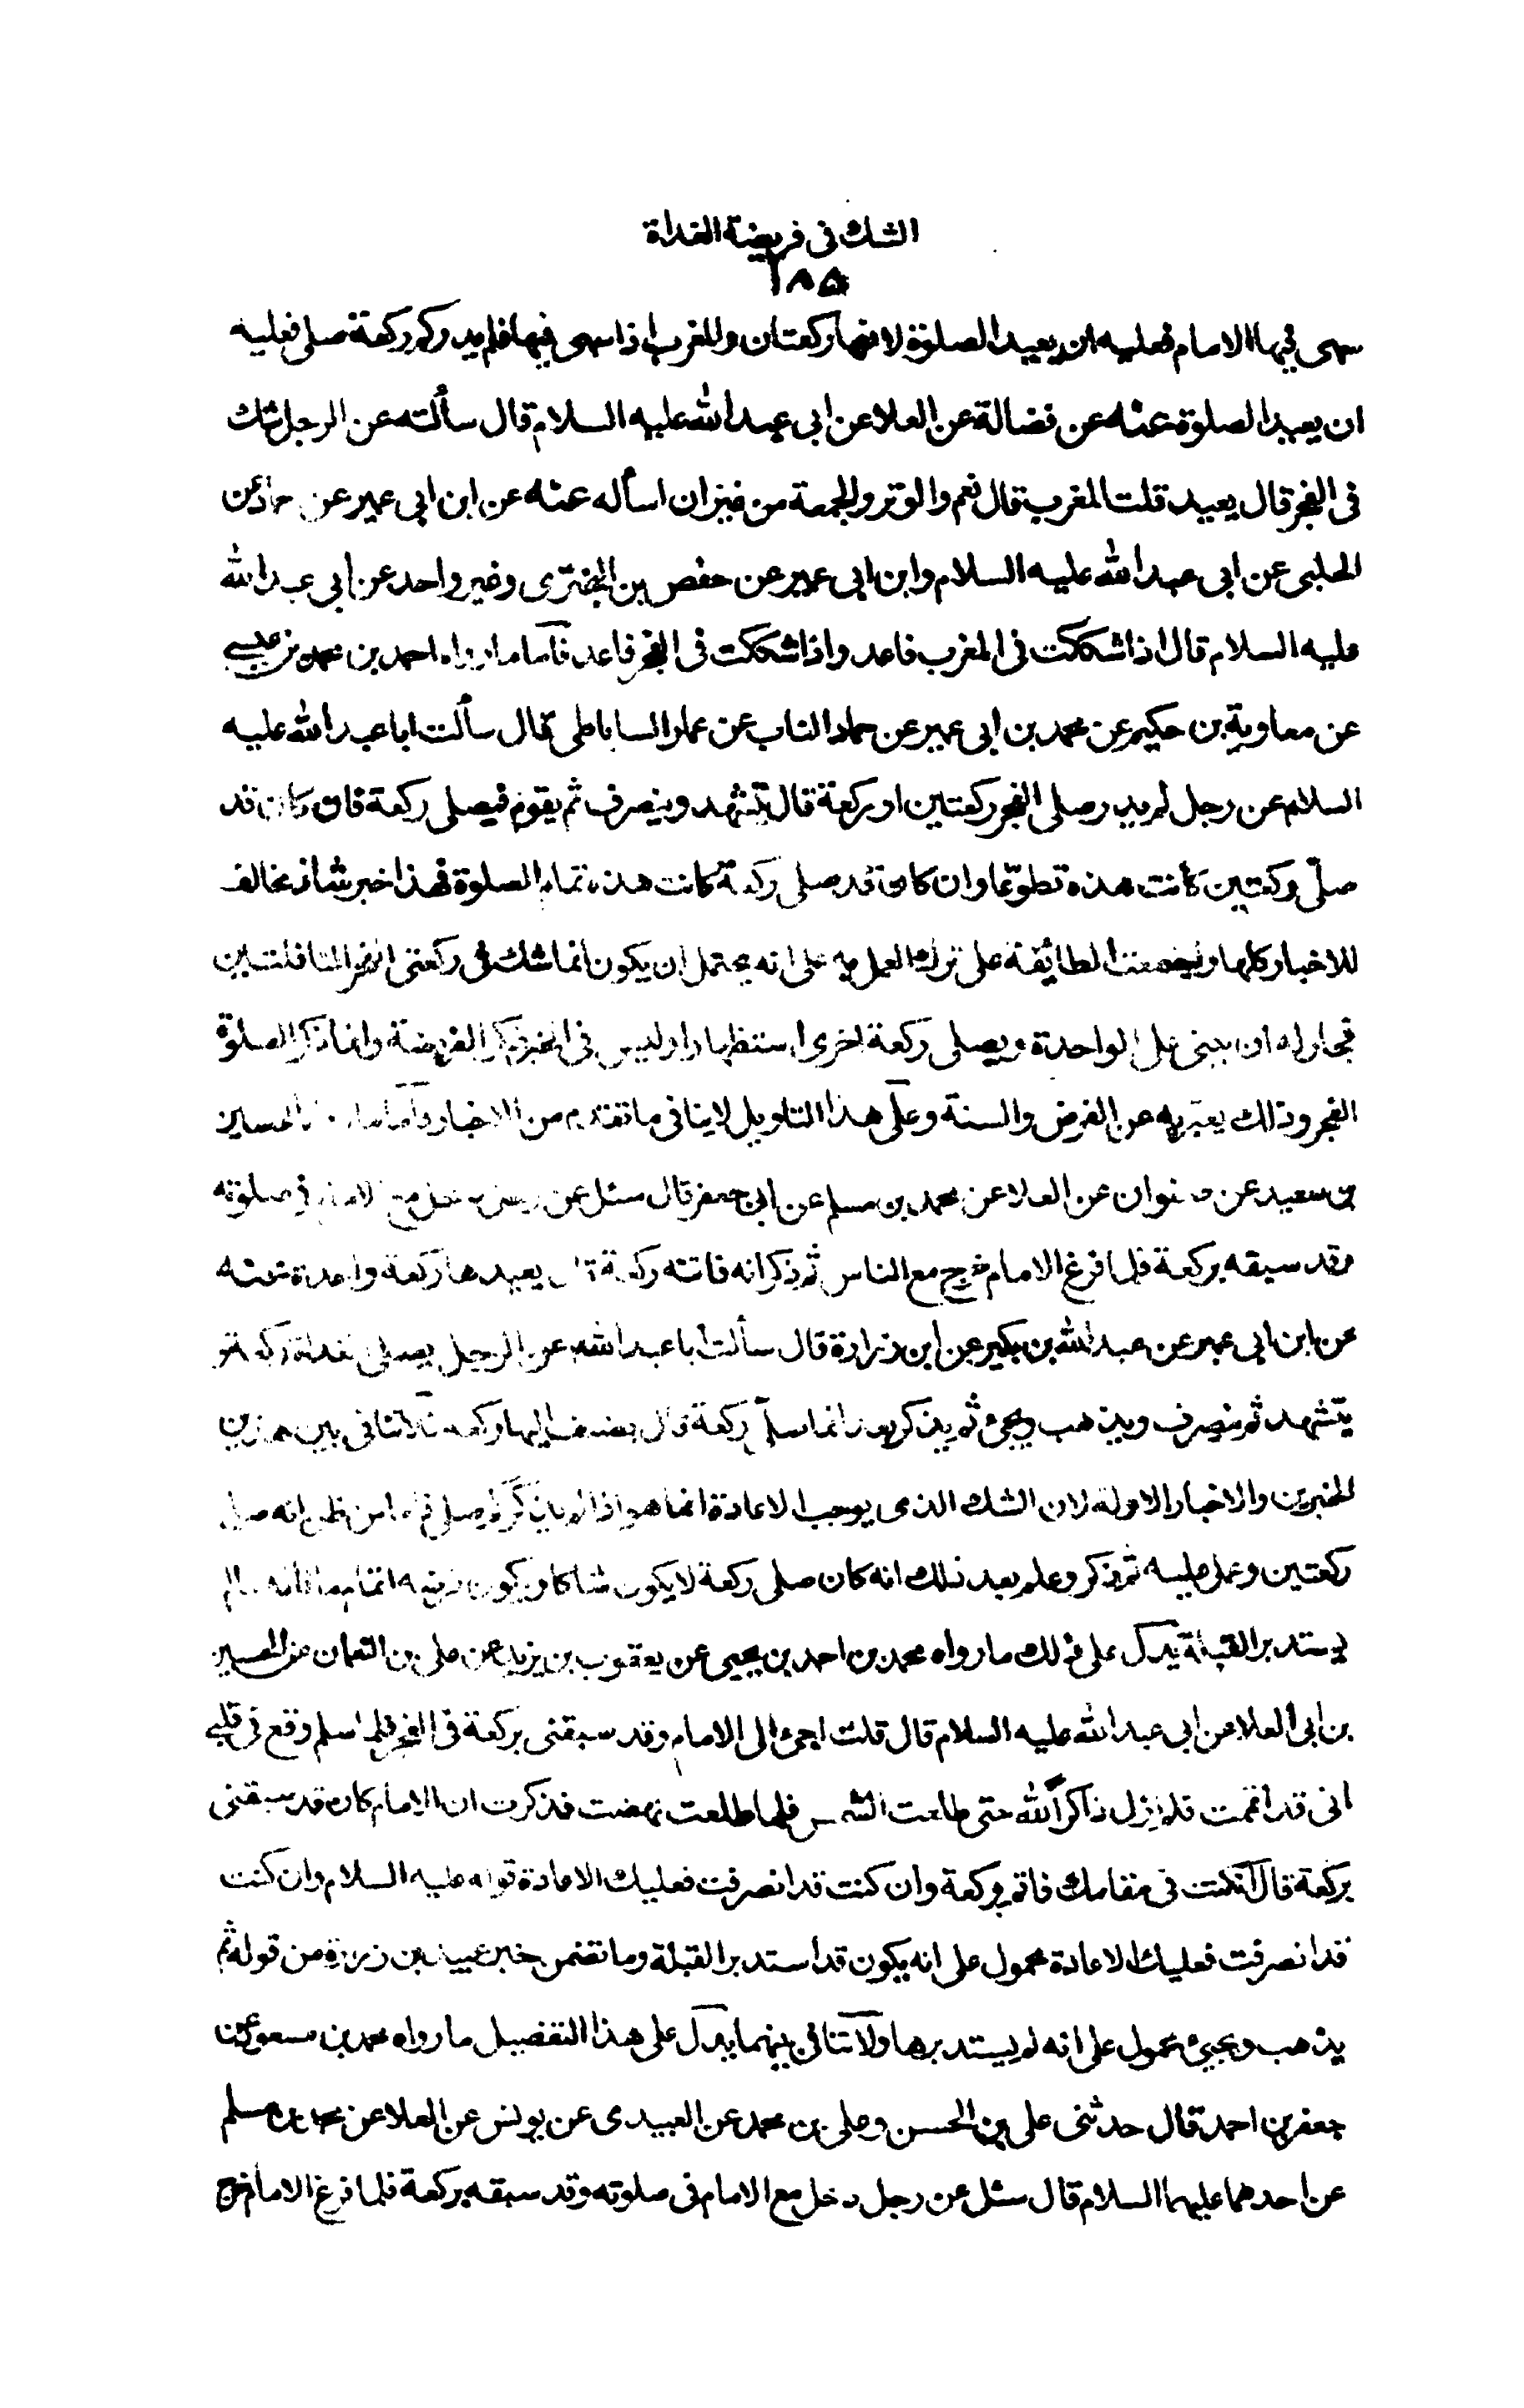 الشك فى فريضة الغداة
١٨٥
سهى فيها الامام فعليه ان يعيد الصلوة لانها ركعتان والمغرب اذا سهى فيها فلم يدر كم ركعة صلى فعليه
ان يعيد الصلوة عنه عن فضالة عن العلا عن ابى عبد الله عليه السلام قال سألته عن الرجل يشك
فى الفجر قال يعيد قلت المغرب قال نعم والوتر والجمعة من غير ان اسأله عنه عن ابن ابى عمير عن حماد عن
الحلبى عن ابى عبد الله عليه السلام وابن ابى عمير عن حفص بن البخترى وغير واحد عن ابى عبد الله
عليه السلام قال اذا شككت فى المغرب فاعد واذا شككت فى الفجر فاعد فآما ما رواه احمد بن محمد بن عيسى
عن معاوية بن حكيم عن محمد بن ابى عمير عن حماد الناب عن عمار الساباطى قال سألت ابا عبد الله عليه
السلام عن رجل لم يدر صلى الفجر ركعتين او ركعة قال يتشهد وينصرف ثم يقوم فيصلى ركعة فان كان قد
صلّى ركعتين كانت هذه تطوّعا وان كان قد صلى ركعة كانت هذه تمام الصلوة فهذا خبر شاذ مخالف
للاخبار كلها واجمعت الطائفة على ترك العمل به على انه يحتمل ان يكون انما شك فى ركعتى الفجر النافلتين
فجاز له ان يبنى على الواحدة ويصلى ركعة اخرى استظهارا وليس فى الخبر ذكر الفريضة وانما ذكر الصلوة
الفجر وذلك يعبّر به عن الفرض والسنة وعلى هذا التاويل لاينافى ما تقدم من الاخبار فآما ما الحسين
بن سعيد عن صفوان عن العلا عن محمد بن مسلم عن ابى جعفر قال سئل عن رجل دخل مع الامام فى صلوته
وقد سبقه بركعة فلما فرغ الامام خرج مع الناس ثم ذكر انه فاتته ركعة قال يعيدها ركعة واحدة عنه
عن ابن ابى عمير عن عبد الله بن بكير عن ابن زرارة قال سألت ابا عبد الله عن الرجل يصلى الغداة ركعة و
يتشهد ثم ينصرف ويذهب ويجئ ثم يذكر بعد انما صلّى ركعة قال يضيف اليها ركعة فلا تنافى بين هذين
الخبرين والاخبار الاولة لان الشك الذى يوجب الاعادة انما هو اذا لم يذكر كم صلى فاما من ظن انه صلى
ركعتين وعمل عليه ثم ذكر وعلم بعد ذلك انه كان صلى ركعة لا يكون شاكا ويكون فرضه اتمامها ما لم
يستدبر القبلة يدل على ذلك ما رواه محمد بن احمد بن يحيى عن يعقوب بن يزيد عن على بن النعمان عن الحسين
بن ابى العلا عن ابى عبد الله عليه السلام قال قلت اجئ الى الامام وقد سبقنى بركعة فى الفجر فلما سلم وقع فى قلبى
انى قد اتممت فلم ازل ذاكرا لله حتى طلعت الشمس فلما طلعت نهضت فذكرت ان الامام كان قد سبقنى
بركعة قال ان كنت فى مقامك فاتم بركعة وان كنت قد انصرفت فعليك الاعادة قوله عليه السلام وان كنت
قد انصرفت فعليك الاعادة محمول على انه يكون قد استدبر القبلة وما تضمن خبر عبيد بن زرارة من قوله ثم
يذهب ويجيئ محمول على انه لم يستدبرها ولا تنافى بينهما يدل على هذا التفصيل ما رواه محمد بن مسعود عن
جعفر بن احمد قال حدثنى على بن الحسن وعلى بن محمد عن العبيدى عن يونس عن العلا عن محمد بن مسلم
عن احدهما عليهما السلام قال سئل عن رجل دخل مع الامام فى صلوته وقد سبقه بركعة فلما فرغ الامام خرج